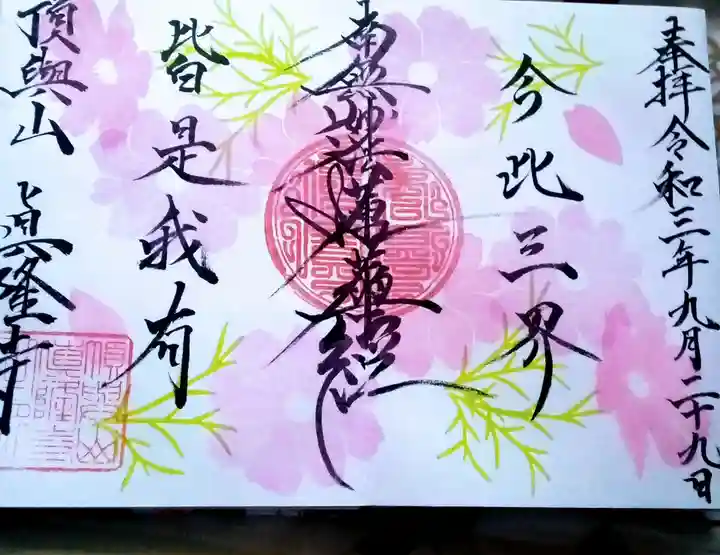 奉拝 令和三年九月二十九日
今此三界
南無妙法蓮華経
皆是我有
頂興山 真隆寺